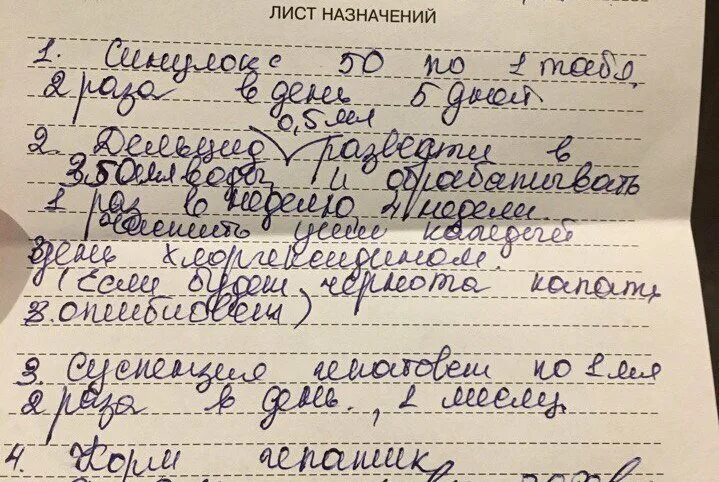 ЛИСТ НАЗНАЧЕНИЙ
1. Синулокс 50 по 1 табл.
2 раза в день 5 дней
0,5 мл
2. Дельцид развести в
50 мл воды и обрабатывать
1 раз в неделю 4 недели.
Чистить уши каждый
день хлоргексидином.
(Если будет чернота капать
отибиовет)
3. Суспензия гепатовет по 1 мл
2 раза в день., 1 месяц
4. Корм гепатик